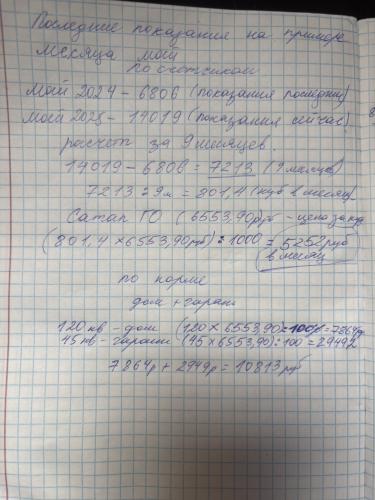 Последние показания на примере
месяца май
по счётчикам
май 2024 - 6806 (показания последние)
май 2025 - 14019 (показания сейчас)
расчет за 9 месяцев.
14019 - 6806 = 7213 (9 месяцев)
7213 : 9м = 801,4 (куб в месяц)
ГО (6553,90) руб - цена за
(801,4 х 6553,90 руб) : 1000 = 5252 руб
в месяц
по норме
дом + гараж
120 кв - дом (120 х 6553,90) : 100 = 7864р
45 кв - гараж (45 х 6553,90) : 100 = 29492
7864р + 2949р = 10813 руб